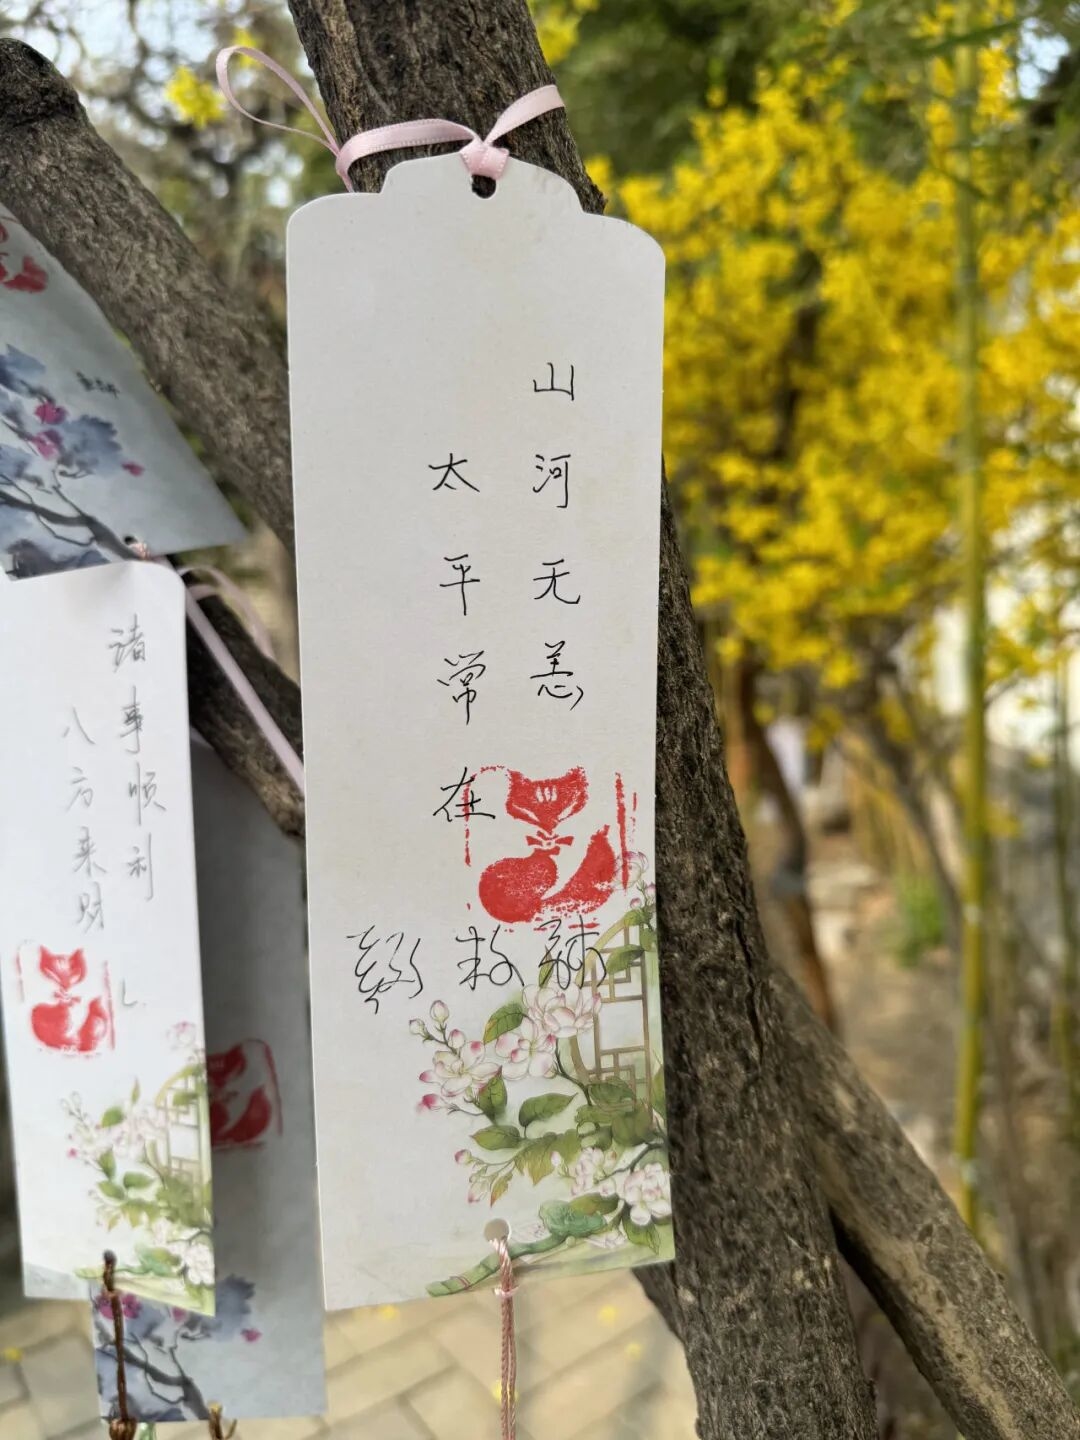 山河无恙
太平常在
诸事顺利
八方来财